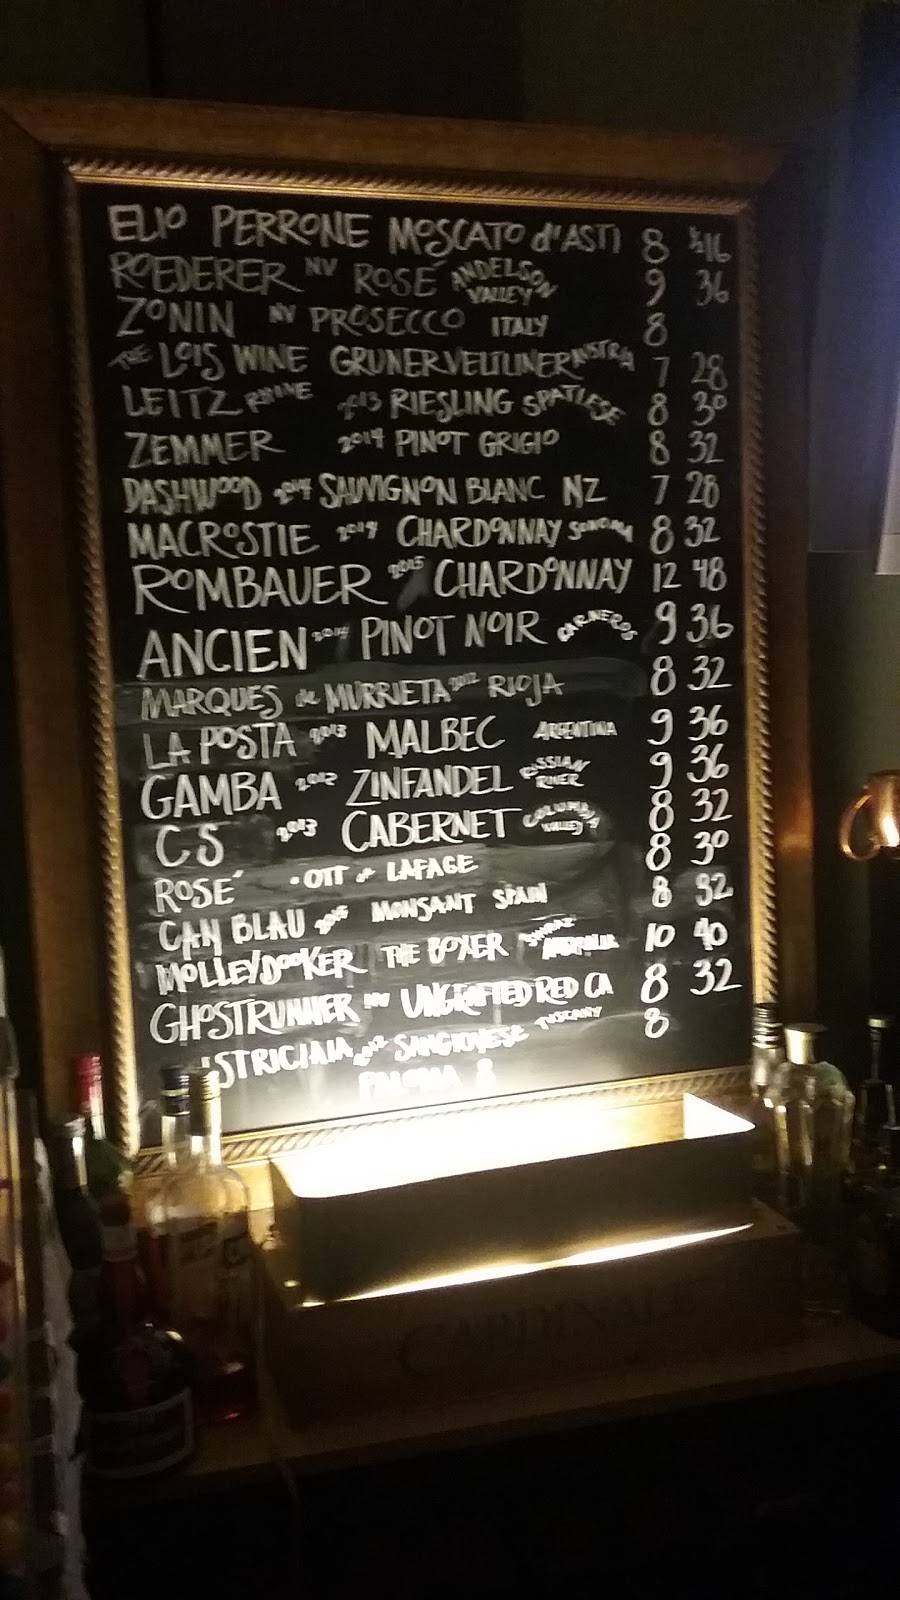 ELIO PERRONE MOSCATO d'ASTI 8 ½16
ROEDERER NV ROSÉ ANDELSON VALLEY 9 36
ZONIN NV PROSECCO ITALY 8
THE LOIS WINE GRUNER VELTLINER AUSTRIA 7 28
LEITZ RHINE 2013 RIESLING SPATLESE 8 30
ZEMMER 2014 PINOT GRIGIO 8 32
DASHWOOD 2014 SAUVIGNON BLANC NZ 7 28
MACROSTIE 2014 CHARDONNAY SONOMA 8 32
ROMBAUER 2015 CHARDONNAY 12 48
ANCIEN 2014 PINOT NOIR CARNEROS 9 36
MARQUES de MURRIETA 2012 RIOJA 8 32
LA POSTA 2013 MALBEC ARGENTINA 9 36
GAMBA 2012 ZINFANDEL RUSSIAN RIVER 9 36
CS 2013 CABERNET COLUMBIA VALLEY 8 32
ROSÉ • OTT or LAFAGE 8 30
CAN BLAU 2015 MONSANT SPAIN 8 32
MOLLEYDOOKER THE BOXER SHIRAZ AUSTRALIA 10 40
GHOSTRUNNER NV UNGRAFTED RED CA 8 32
ISTRICIAIA 2012 SANGIOVESE TUSCANY 8
PALOMA 8
CARDINALE